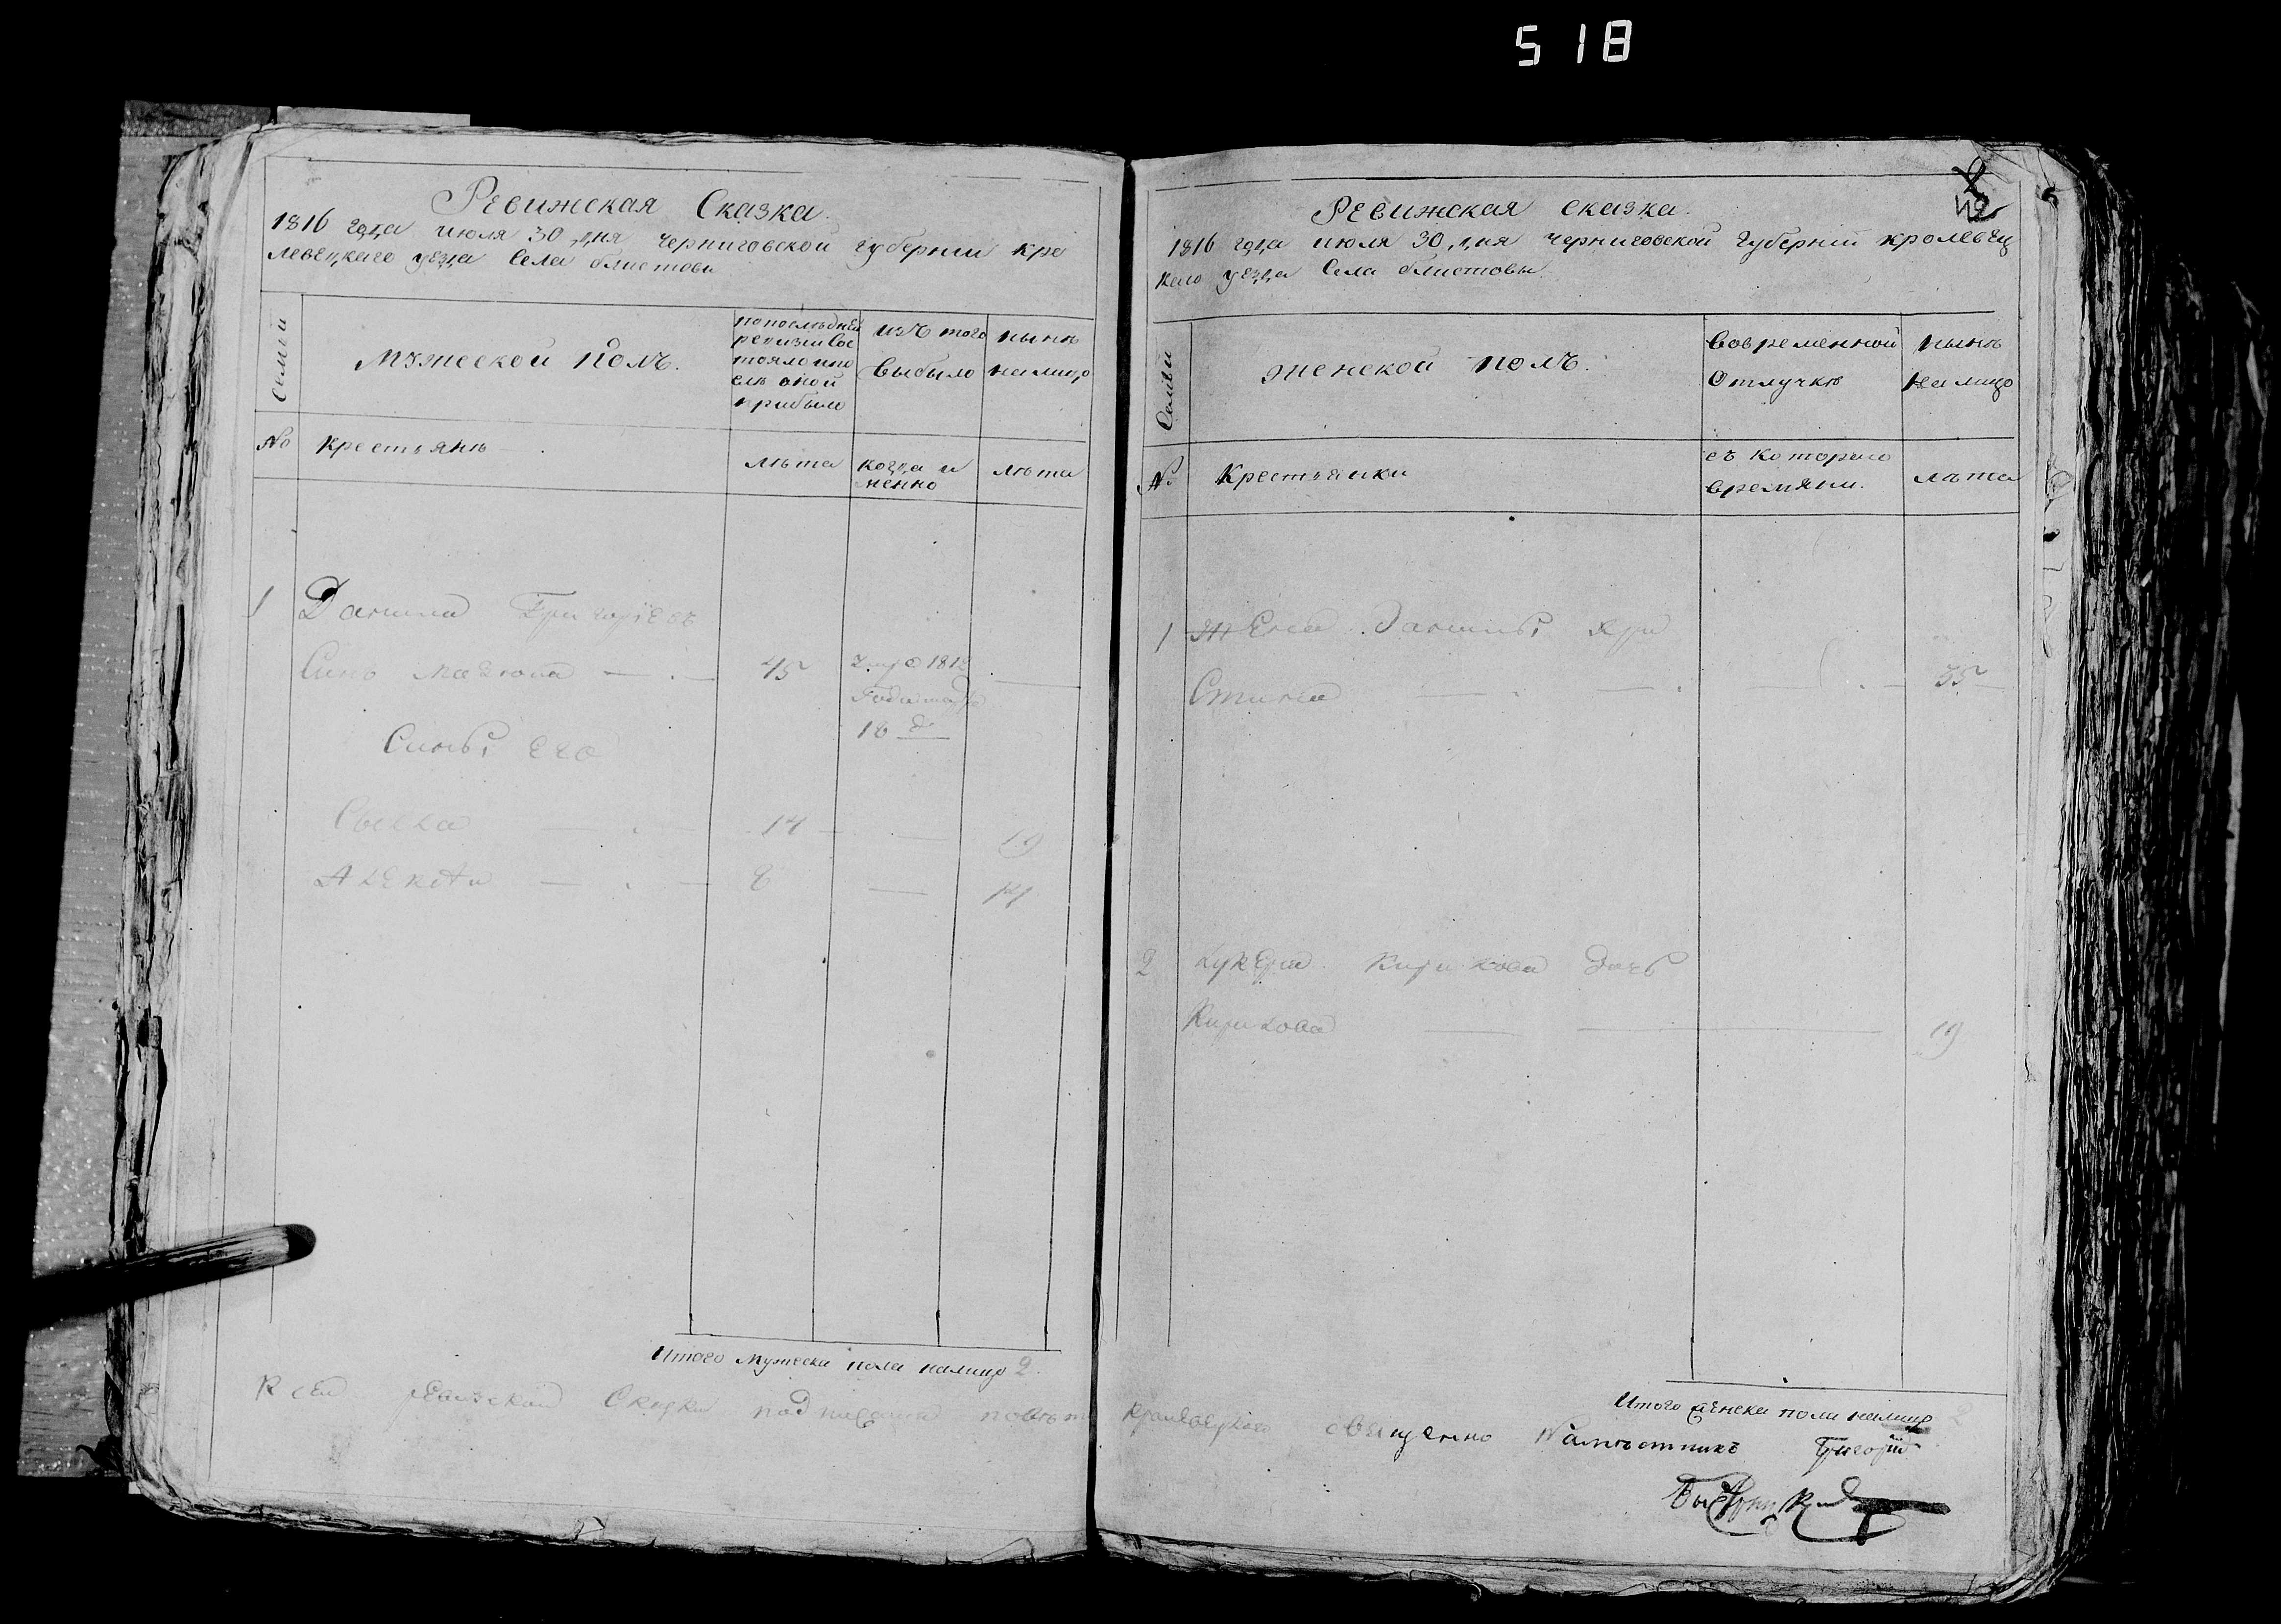 518
Ревижская Сказка.
1816 года июля 30 дня черниговской губернии кро
левецкаго уезда Села блистовы
Семьи
Мужеской Полъ.
попоследней
ревизии сос
тояло и по
сле оной
прибыло
изъ того
выбыло
ныне
налицо
№
крестьяне
лета
когда и
менно
лета
1
Данила Григориевъ
Синъ 45 1812
18
Сины его
Савка 14 19
Алексѣй 8 14
Итого мужеска пола налицо 2.
К сей ревизской Скаски подписался
Ревижская сказка.
1816 года июля 30 дня черниговской губернии кролевец
каго уезда Села блистовы
Семьи
женской полъ.
Вовременной
Отлучке
ныне
на лицо
№
Крестьянки
съ котораго
времяни.
лета
1 жена Данилы Хри
Стина 35
2 Лукерия Кирилова дочь
Кирилова 19
Итого женска пола налицо 2
Кролевецкого священно Наместникъ Григорий